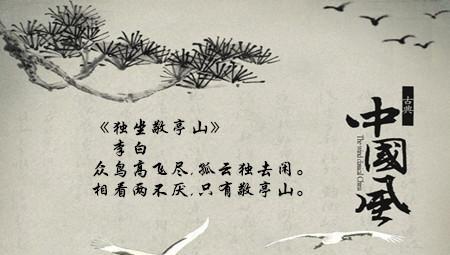 《独坐敬亭山》
李白
众鸟高飞尽,孤云独去闲。
相看两不厌,只有敬亭山。
古典
中國風
The wind classical China